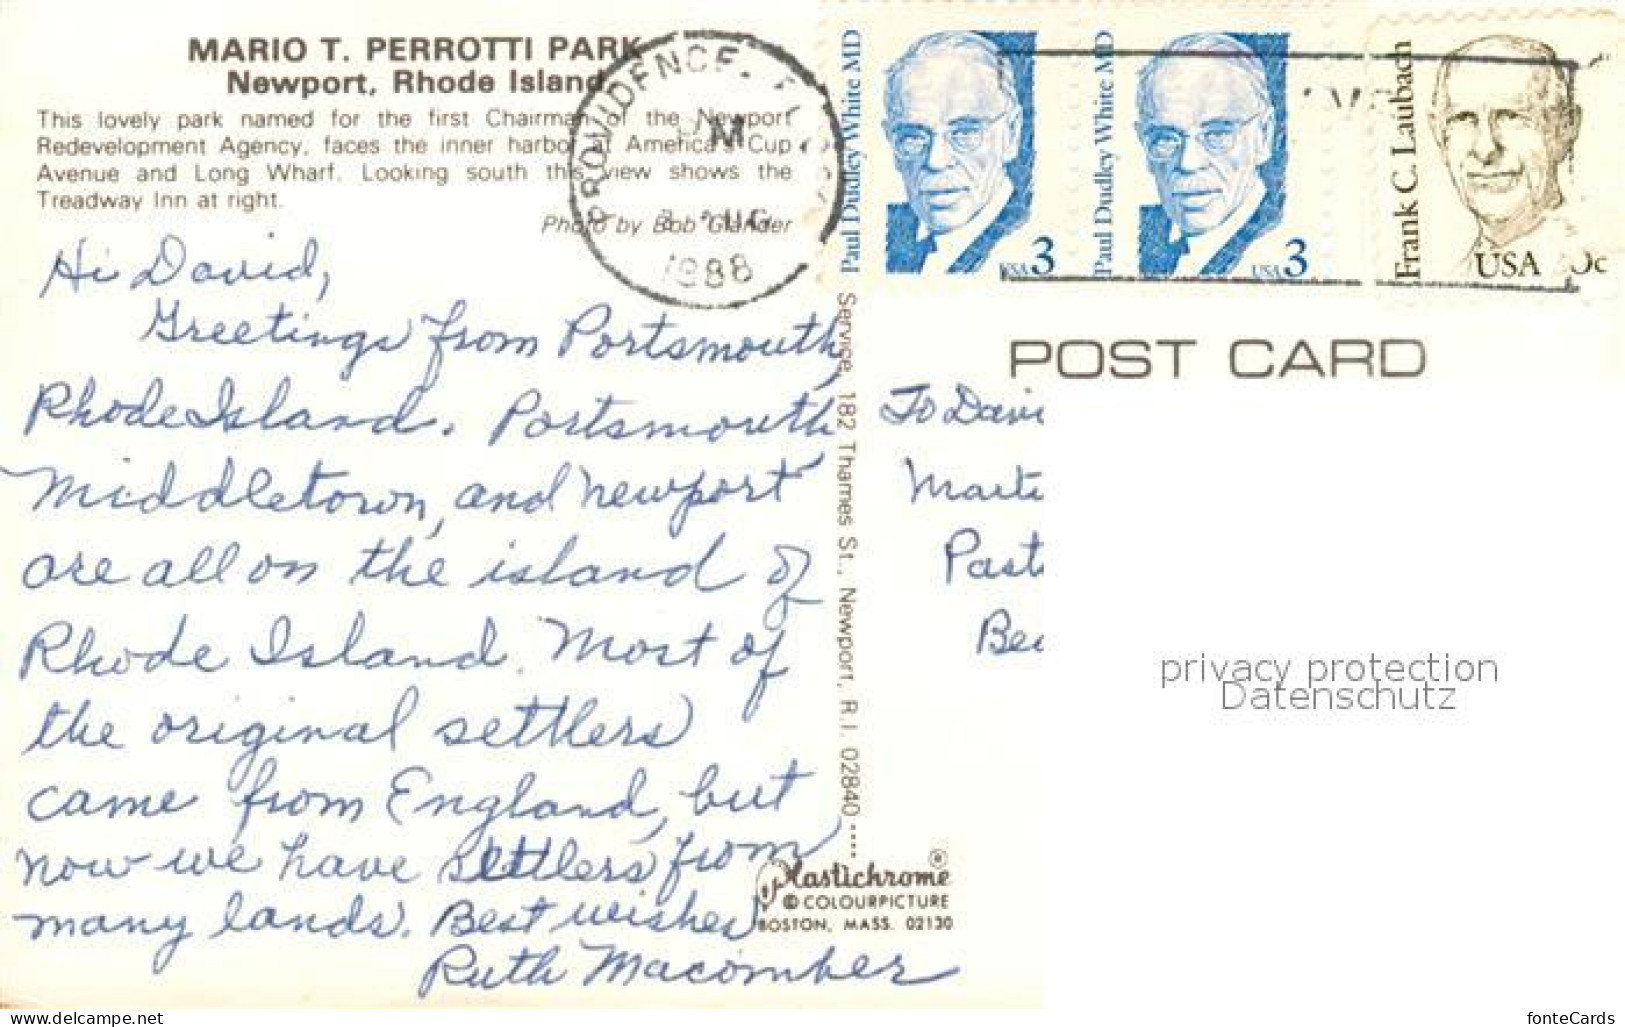 MARIO T. PERROTTI PARK
Newport, Rhode Island
This lovely park named for the first Chairman of the Newport
Redevelopment Agency, faces the inner harbor at America's Cup
Avenue and Long Wharf. Looking south this view shows the
Treadway Inn at right.
Photo by Bob
PROVIDENCE,
AUG
1988
Paul Dudley White MD
USA 3
Paul Dudley White MD
USA 3
Frank C. Laubach
USA
POST CARD
Hi David,
Greetings from Portsmouth,
Rhode Island. Portsmouth
Middletown, and Newport
are all on the island of
Rhode Island. Most of
the original settlers
came from England, but
now we have settlers from
many lands. Best wishes
Ruth Macomber
Service, 182 Thames St., Newport, R.I. 02840
To Davi
Past
privacy protection
Datenschutz
Plastichrome ®
© COLOURPICTURE
BOSTON, MASS. 02130
www.delcampe.net
fonteCards